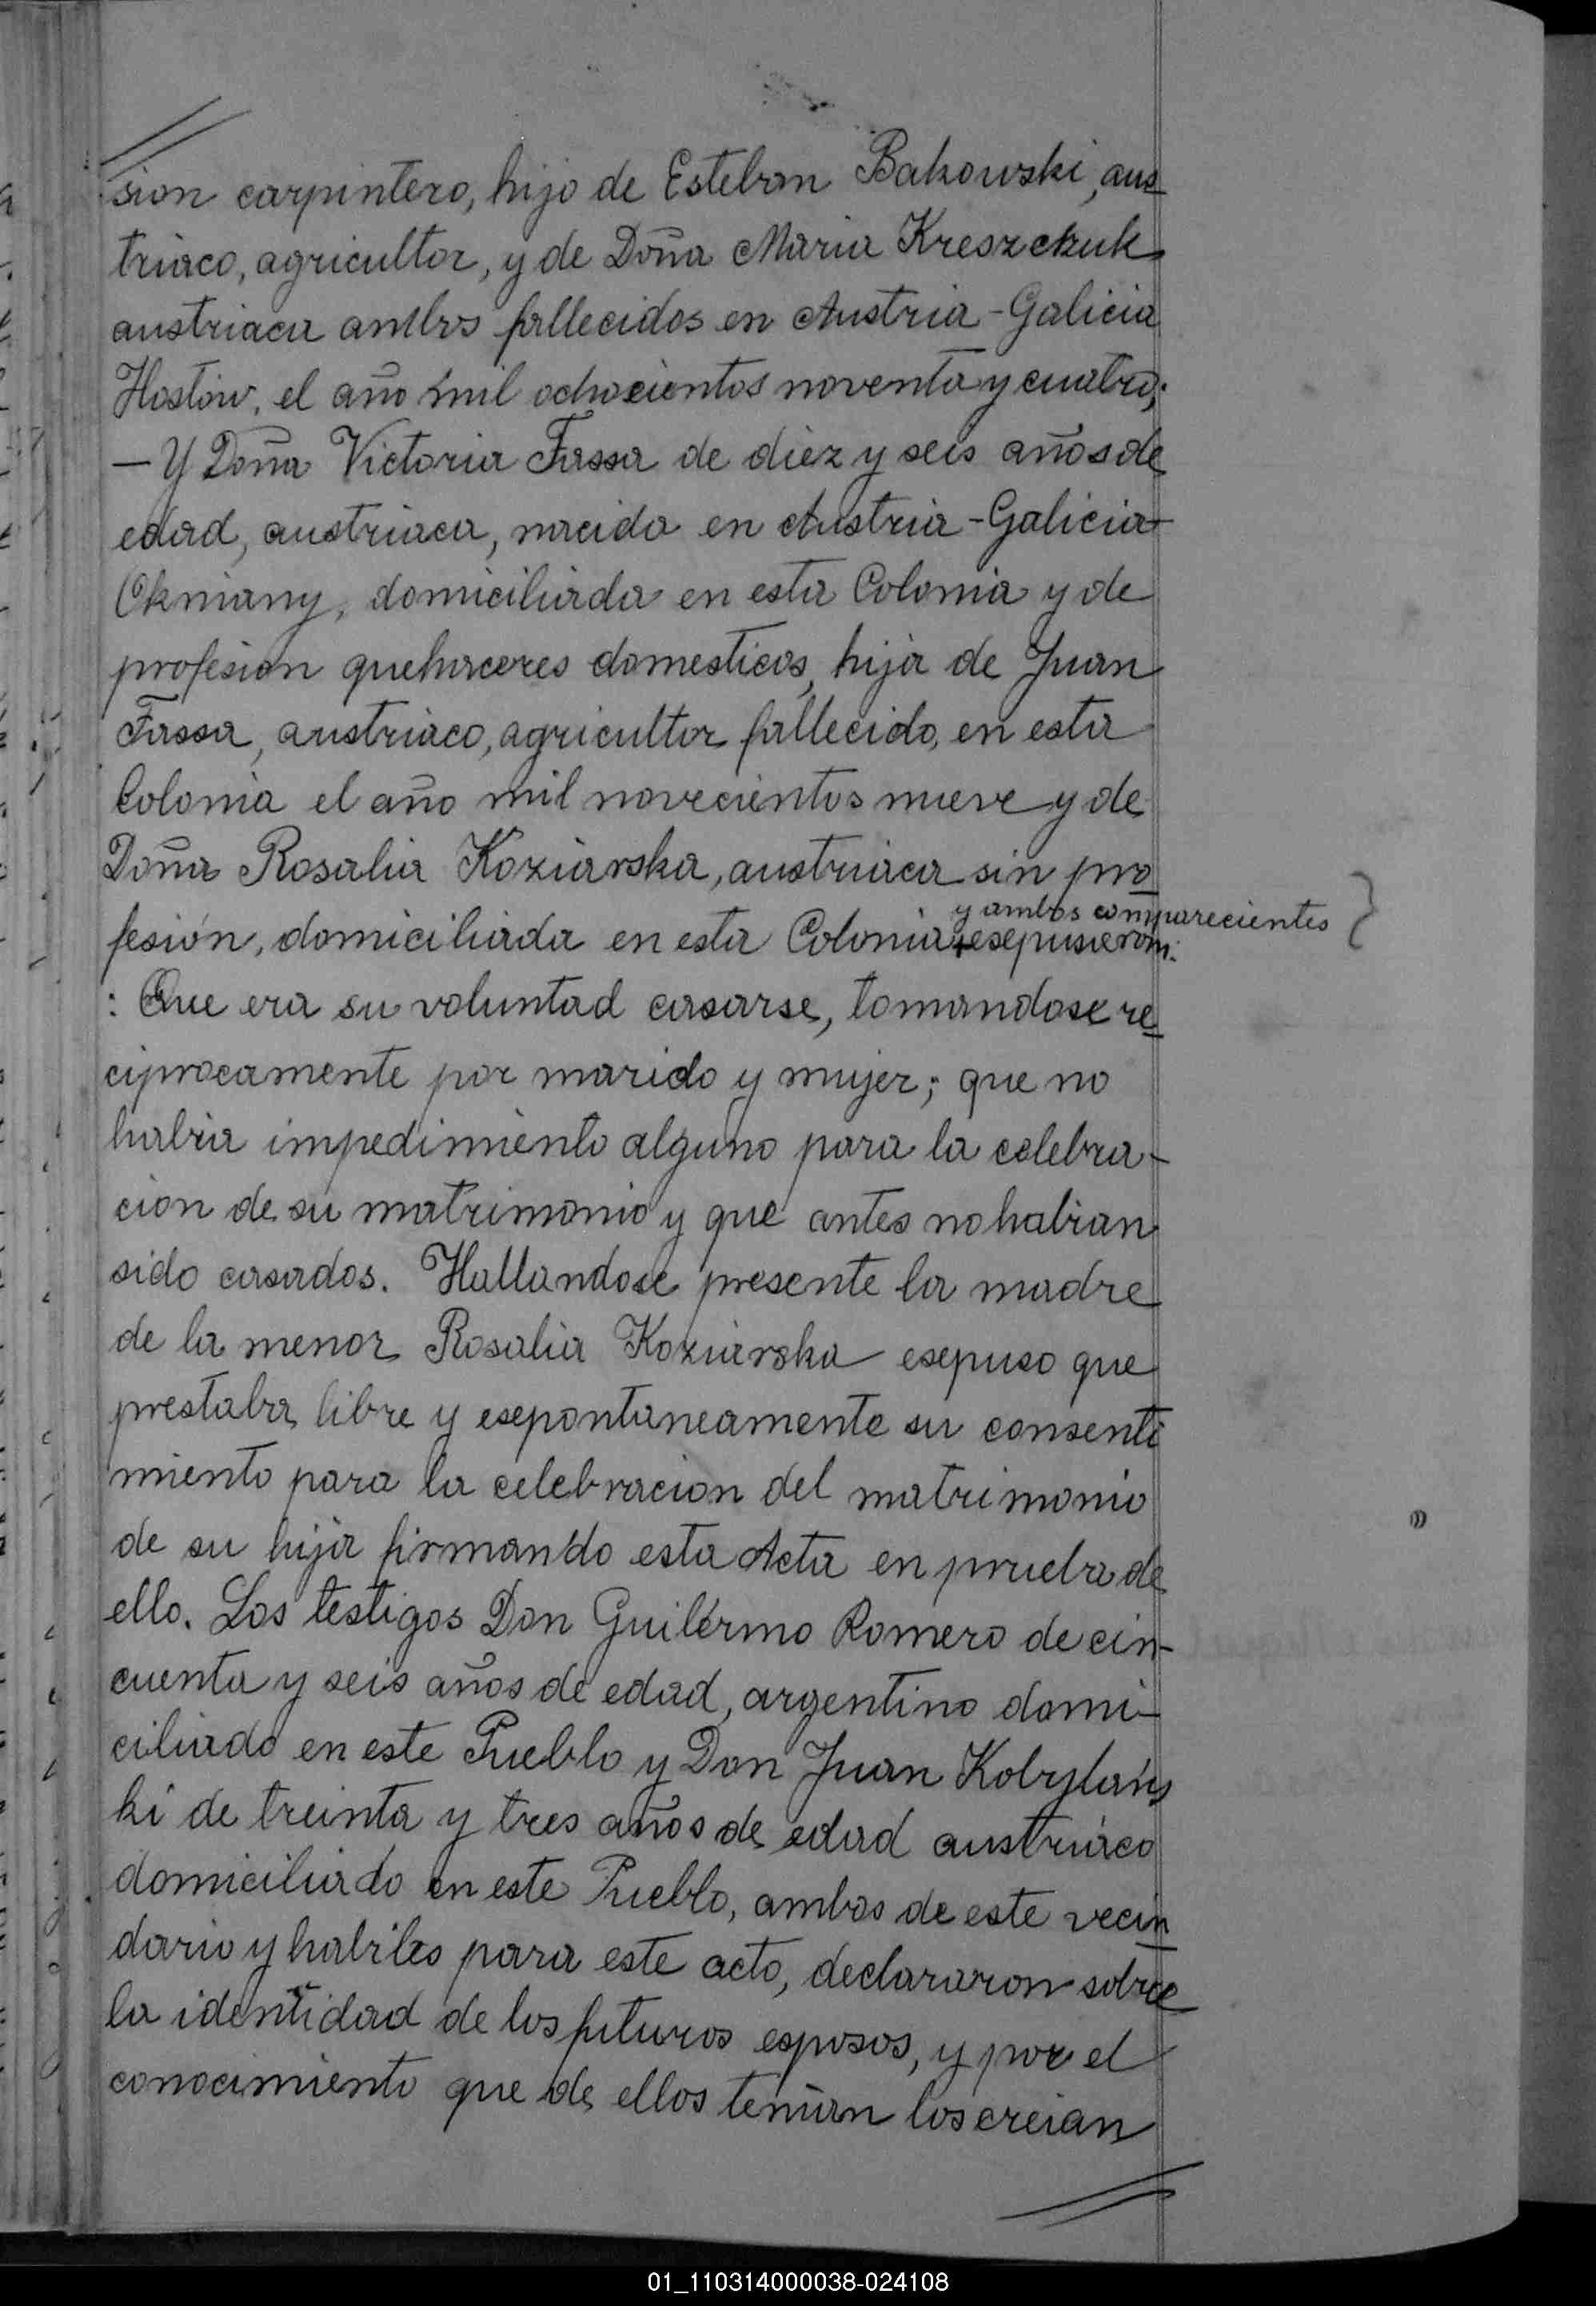 sion carpintero, hijo de Esteban Bakowski, aus
triaco, agricultor, y de Doña Maria Kreszczuk
austriaca ambos fallecidos en Austria-Galicia
Hostów, el año mil ochocientos noventa y cuatro;
— Y Doña Victoria Fassa de diez y seis años de
edad, austriaca, nacida en Austria-Galicia-
Okniany, domiciliada en esta Colonia y de
profesion quehaceres domesticos, hija de Juan
Fassa, austriaco, agricultor fallecido, en esta
Colonia el año mil novecientos nueve y de
Doña Rosalia Koziarska, austriaca sin pro
y ambos comparecientes
fesión, domiciliada en esta Colonia esepusieron:
: Que era su voluntad casarse, tomandose re
ciprocamente por marido y mujer; que no
habia impedimiento alguno para la celebra-
cion de su matrimonio y que antes no habian
sido casados. Hallandose presente la madre
de la menor Rosalia Koziarska esepuso que
prestaba libre y esepontaneamente su consenti
miento para la celebracion del matrimonio
de su hija firmando esta Acta en prueba de
ello. Los testigos Don Guilermo Romero de cin-
cuenta y seis años de edad, argentino domi-
ciliado en este Pueblo y Don Juan Kobylańs
ki de treinta y tres años de edad austriaco
domiciliado en este Pueblo, ambos de este vecin
dario y habiles para este acto, declararon sobre
la identidad de los futuros esposos, y por el
conocimiento que de ellos tenian los creian
01_110314000038-024108